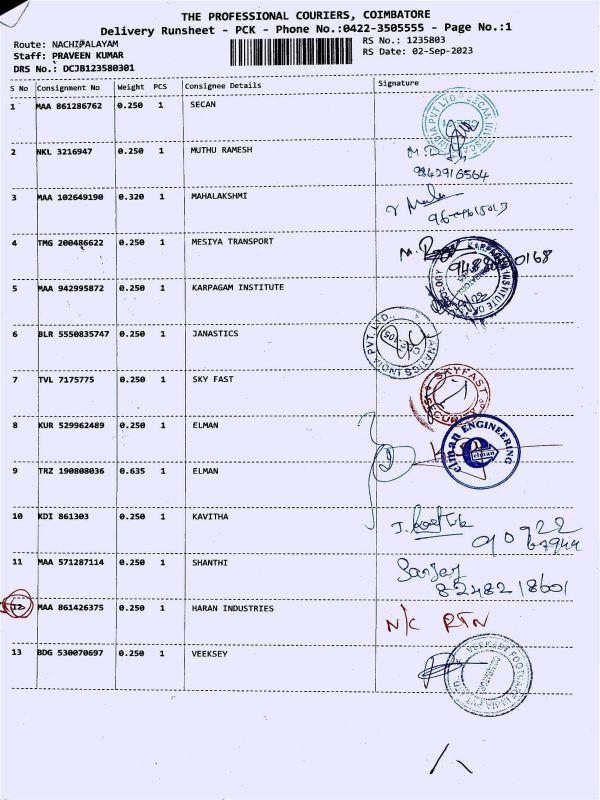 THE PROFESSIONAL COURIERS, COIMBATORE
Delivery Runsheet - PCK - Phone No.:0422-3505555 - Page No.:1
Route: NACHIPALAYAM
RS No.: 1235803
Staff: PRAVEEN KUMAR
RS Date: 02-Sep-2023
DRS No.: DCJB123580301
S No Consignment No Weight PCS Consignee Details Signature
1 MAA 861286762 0.250 1 SECAN
2 NKL 3216947 0.250 1 MUTHU RAMESH
9842916564
3 MAA 102649190 0.320 1 MAHALAKSHMI
4 TMG 200486622 0.250 1 MESIYA TRANSPORT
5 MAA 942995872 0.250 1 KARPAGAM INSTITUTE
KARPAGAM INSTITUTE OF
6 BLR 5550835747 0.250 1 JANASTICS
PVT. LTD.
7 TVL 7175775 0.250 1 SKY FAST
SKYFAST
SECURITY
8 KUR 529962489 0.250 1 ELMAN
elman ENGINEERING
elman
9 TRZ 190808036 0.635 1 ELMAN
10 KDI 861303 0.250 1 KAVITHA
11 MAA 571287114 0.250 1 SHANTHI
Sanjay
8248218601
12 MAA 861426375 0.250 1 HARAN INDUSTRIES N/C RTN
13 BDG 530070697 0.250 1 VEEKSEY